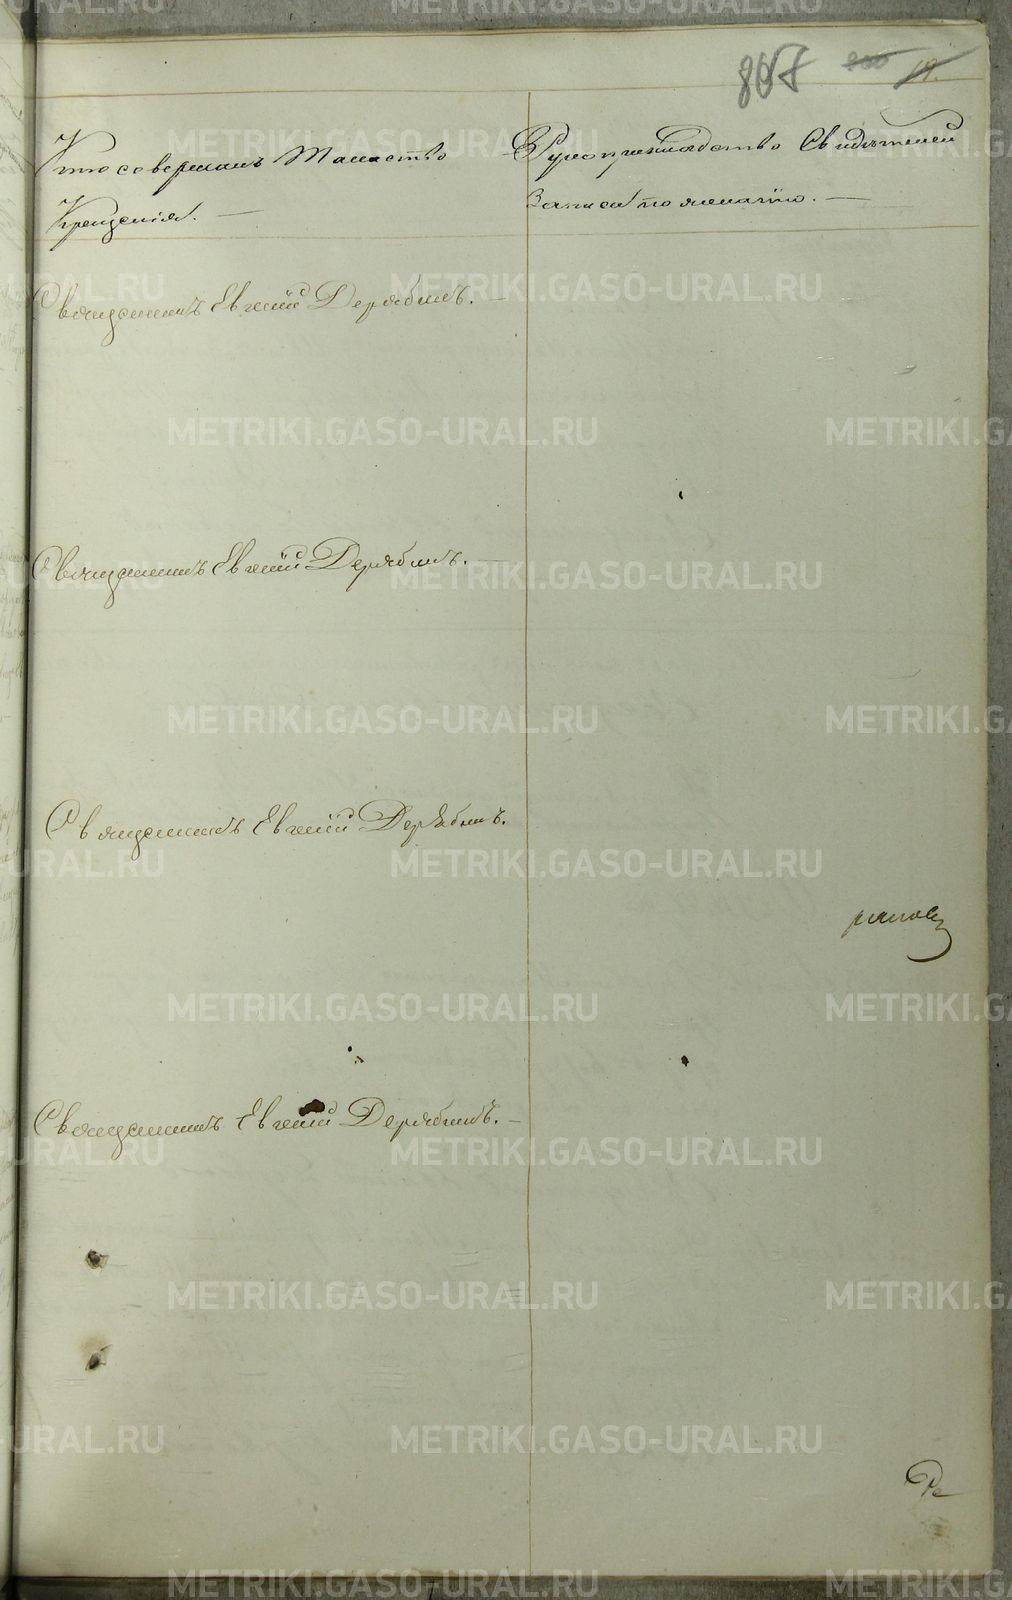 807
19.
Кто совершалъ Таинство
Крещенія. —
Рукоприкладство Свидѣтелей
Записи по желанію. —
Священникъ Евгеній Дерябинъ. —
Священникъ Евгеній Дерябинъ. —
Священникъ Евгеній Дерябинъ.
Священникъ Евгеній Дерябинъ. —
Ре
METRIKI.GASO-URAL.RU